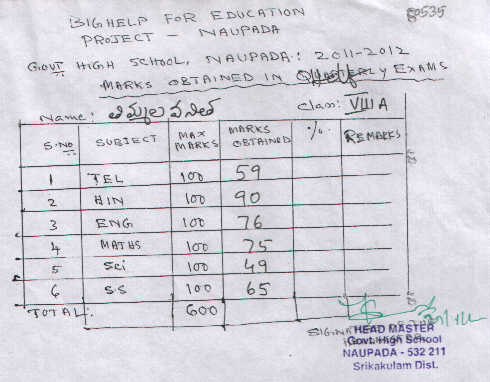 BIGHELP FOR EDUCATION
80535
PROJECT - NAUPADA
GOVT HIGH SCHOOL, NAUPADA: 2011-2012
MARKS OBTAINED IN QUARTERLY EXAMS
Name: తిమ్మల వనిత Class: VIII A
S.NO SUBJECT MAX MARKS MARKS OBTAINED % REMARKS
1 TEL 100 59
2 HIN 100 90
3 ENG 100 76
4 MATHS 100 75
5 Sci 100 49
6 S.S 100 65
TOTAL: 600
HEAD MASTER
Govt. High School
NAUPADA - 532 211
Srikakulam Dist.